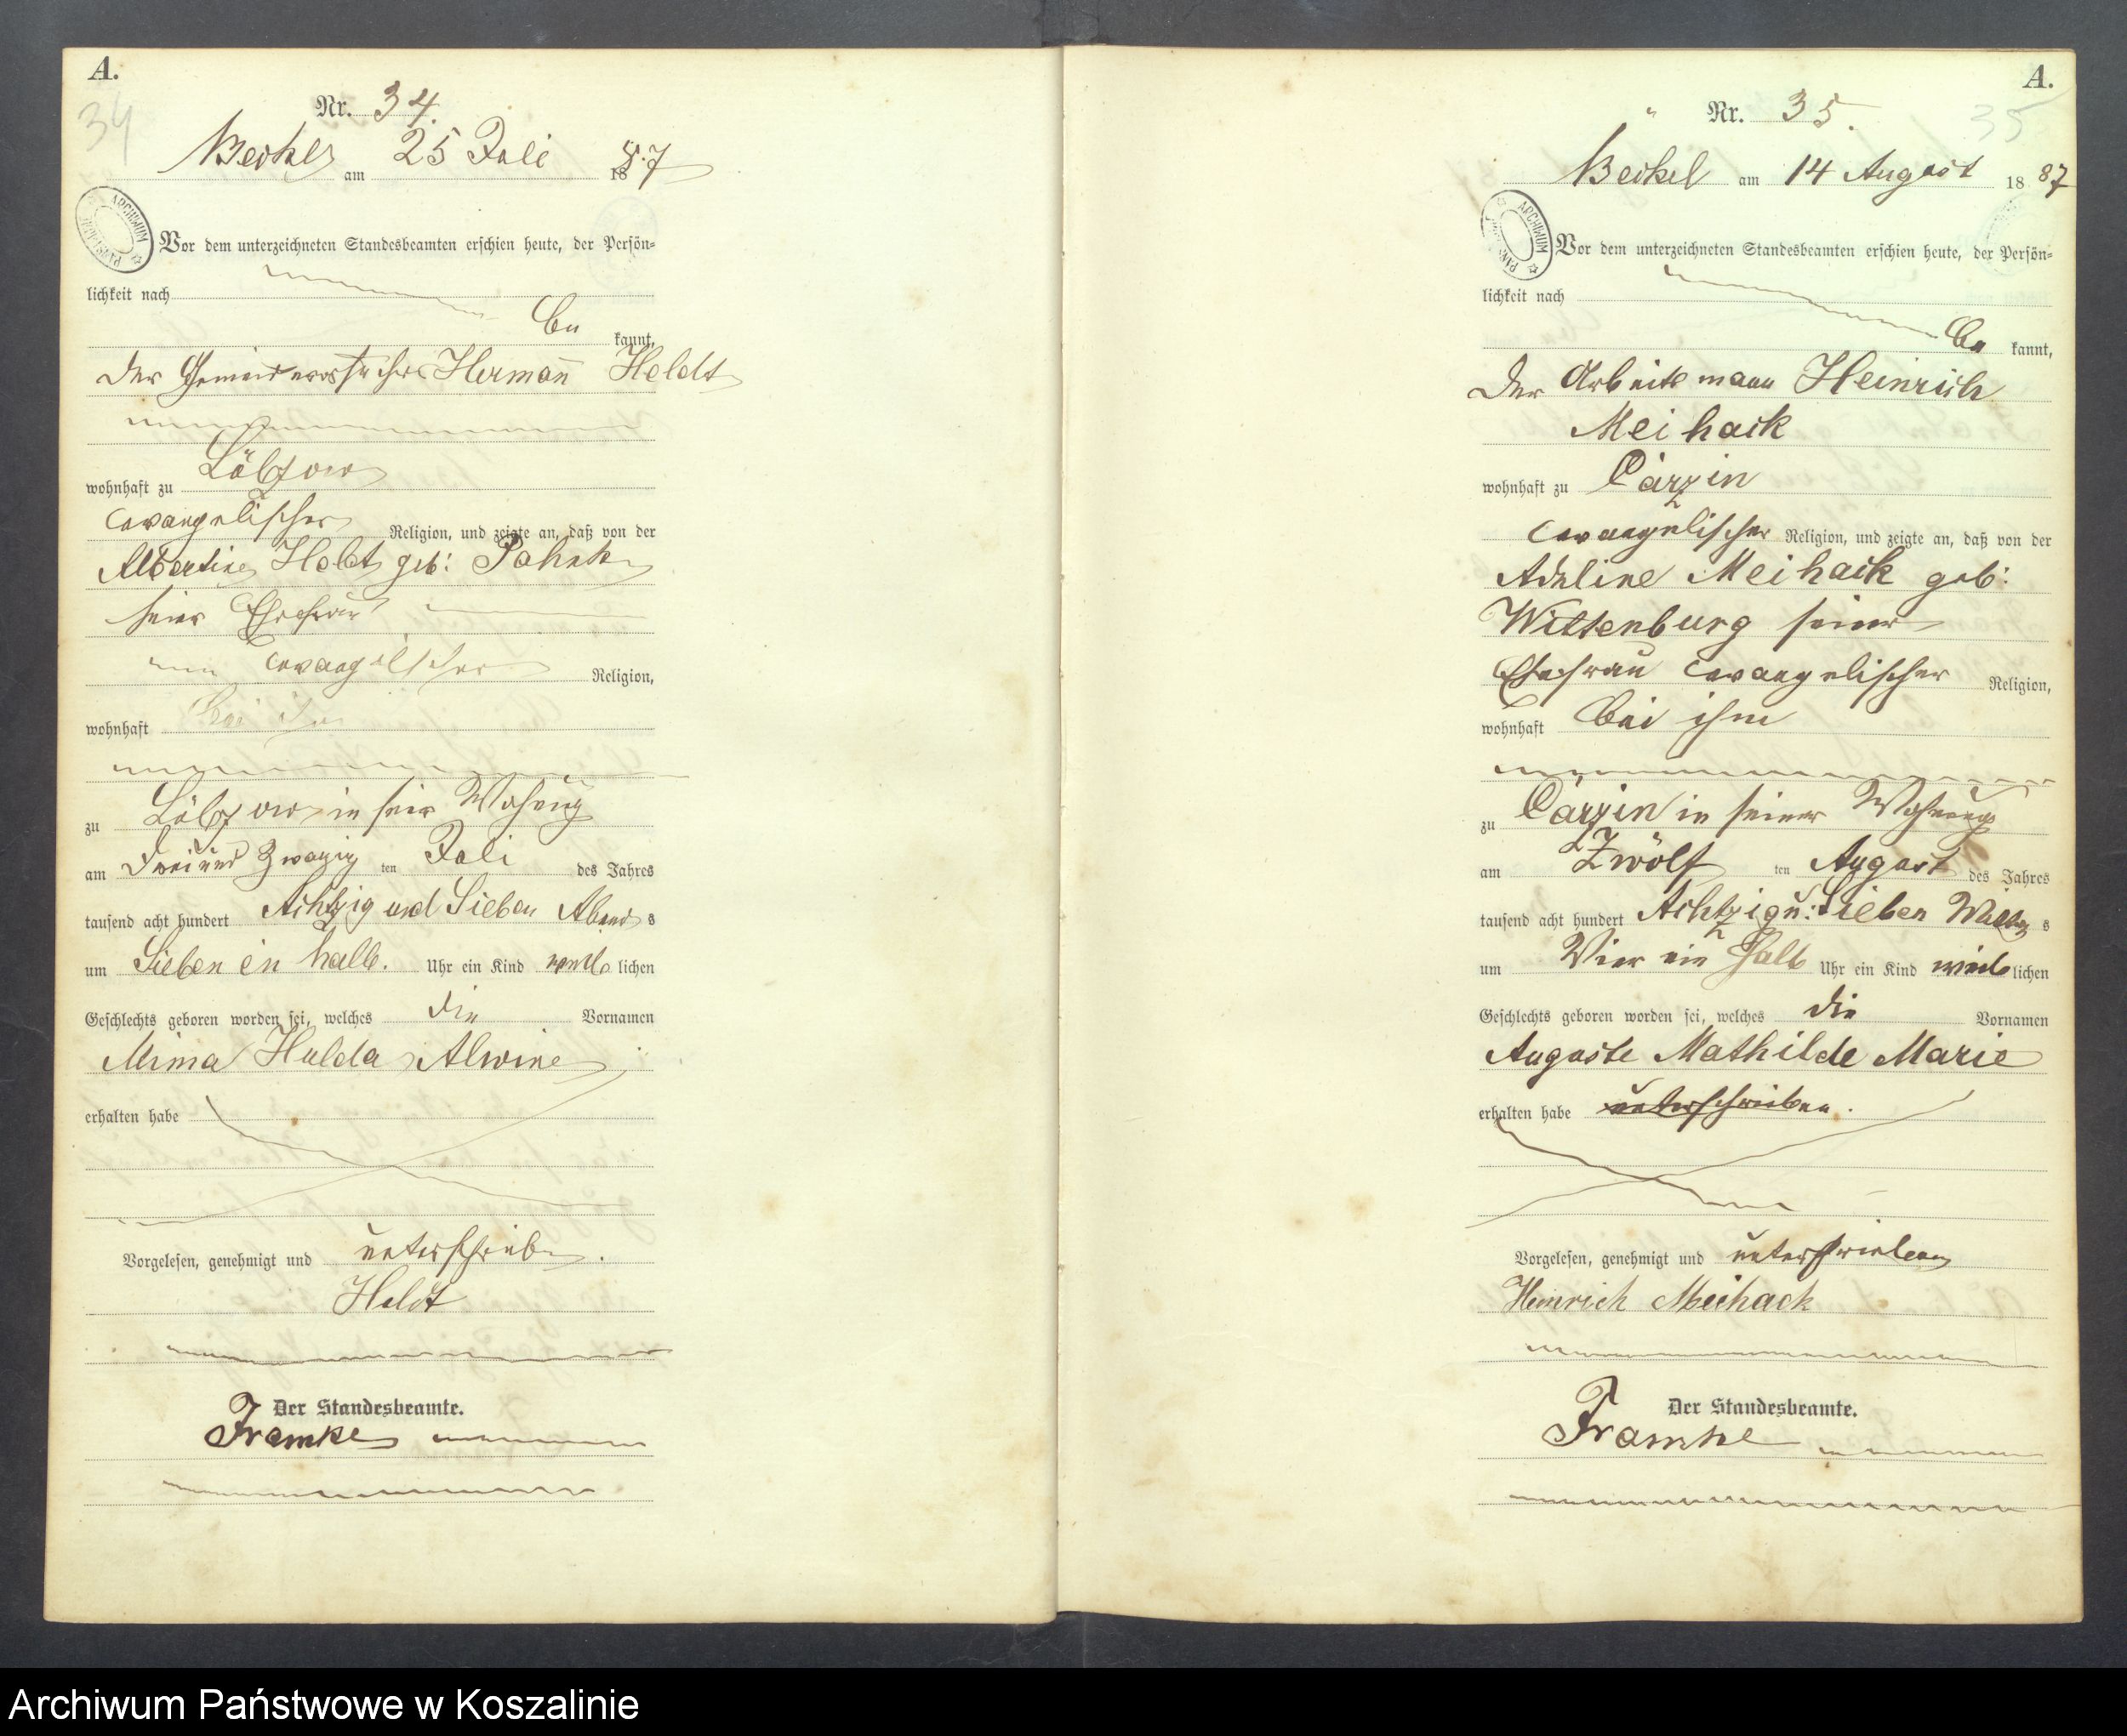 A.
34
Nr. 34.
Beckel am 25 Juli 1887
ARCHIWUM
Vor dem unterzeichneten Standesbeamten erschien heute, der Persön=
lichkeit nach
be kannt,
der Gemeindevorsteher Hermann Heldt
wohnhaft zu Lübzow
evangelischer Religion, und zeigte an, daß von der
Albertine Heldt geb:
seiner Ehefrau
evangelischer Religion,
wohnhaft bei ihm
zu Lübzow in seiner Wohnung
am drei und zwanzig ten Juli des Jahres
tausend acht hundert Achtzig und Sieben Abend s
um Sieben ein halb. Uhr ein Kind weib lichen
Geschlechts geboren worden sei, welches die Vornamen
Hulda Alwine
erhalten habe
Vorgelesen, genehmigt und unterschrieben.
Heldt
Der Standesbeamte.
Framke
A.
35
Nr. 35.
Beckel am 14 August 1887
ARCHIWUM
Vor dem unterzeichneten Standesbeamten erschien heute, der Persön=
lichkeit nach
be kannt,
der Arbeitsmann Heinrich
Meihack
wohnhaft zu Carzin
evangelischer Religion, und zeigte an, daß von der
Adeline Meihack geb:
Wittenburg seiner
Ehefrau evangelischer Religion,
wohnhaft bei ihm
zu Carzin in seiner Wohnung
am Zwölf ten August des Jahres
tausend acht hundert Achtzig u: Sieben s
um Vier ein halb Uhr ein Kind weib lichen
Geschlechts geboren worden sei, welches die Vornamen
Auguste Mathilde Marie
erhalten habe unterschrieben.
Vorgelesen, genehmigt und unterschrieben
Heinrich Meihack
Der Standesbeamte.
Framke
Archiwum Państwowe w Koszalinie